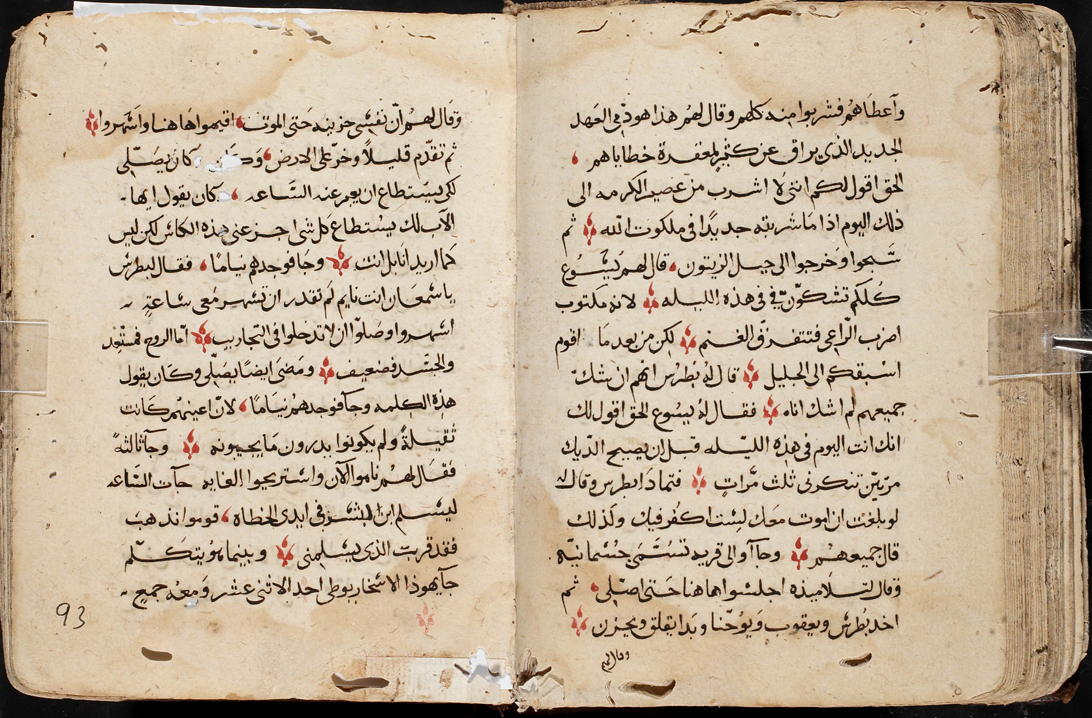 وآعطاهم فشربوا منه كلهم وقال لهم هذا هو دمي العهد
الجديد الذي يراق عن كثير لمغفرة خطاياهم
الحق اقول لكم انني لا اشرب من عصير الكرمه الى
ذلك اليوم اذا ما شربته جديدًا في ملكوت الله ثم
سبحوا وخرجوا الى جبل الزيتون قال لهم يسوع
كلكم تشكون في في هذه الليله لانه مكتوب
اضرب الراعي فتتفرق الغنم لكن من بعد ما اقوم
اسبقكم الى الجليل قال له بطرس انهم ان شك
جميعهم لم اشك انا فقال له يسوع الحق اقول لك
انك انت اليوم في هذه الليله قبل ان يصيح الديك
مرتين تنكرني ثلث مرات فتمادا بطرس وقال
لو بلغت ان اموت معك لست اكفر فيك وكذلك
قال جميعهم وجاآوا الى قريه تسمى جسمانيه
وقال لتلاميذه اجلسوا هاهنا حتى اصلي ثم
اخد بطرس ويعقوب ويوحنا وبدا يقلق ويحزن
وقال لهم
وقال لهم ان نفسي حزينه حتى الموت اقيموا هاهنا واسهروا
ثم تقدم قليلاً وخر على الارض كان يصلي
لكي يستطاع ان يعبر عنه الساعه كان يقول ايها
الآب لك يستطاع كل شي اجز عني هذه الكاس لكن ليس
كما اريد انا بل انت وجا فوجدهم نيامًا فقال لبطرس
ياسمعان انت نايم لم تقدر ان تسهر معي ساعةٍ
اسهروا وصلوا ان لا تدخلوا في التجاريب اما الروح فمستعد
والجسد فضعيف ومضى ايضًا يصلي وكان يقول
هذه الكلمه وجا فوجدهم نيامًا لان اعينهم كانت
ثقيلة ولم يكونوا يدرون ما يجيبونه وجا ثالثةً
فقال لهم ناموا الآن واستريحوا الغايه جآت الساعه
ليسلم ابن البشر في ايدي الخطاه قوموا نذهب
فقد قرب الذي يسلمني وبينما هو يتكلم
جا يهوذا الاسخاريوطي احد الاثني عشر ومعه جميع
93